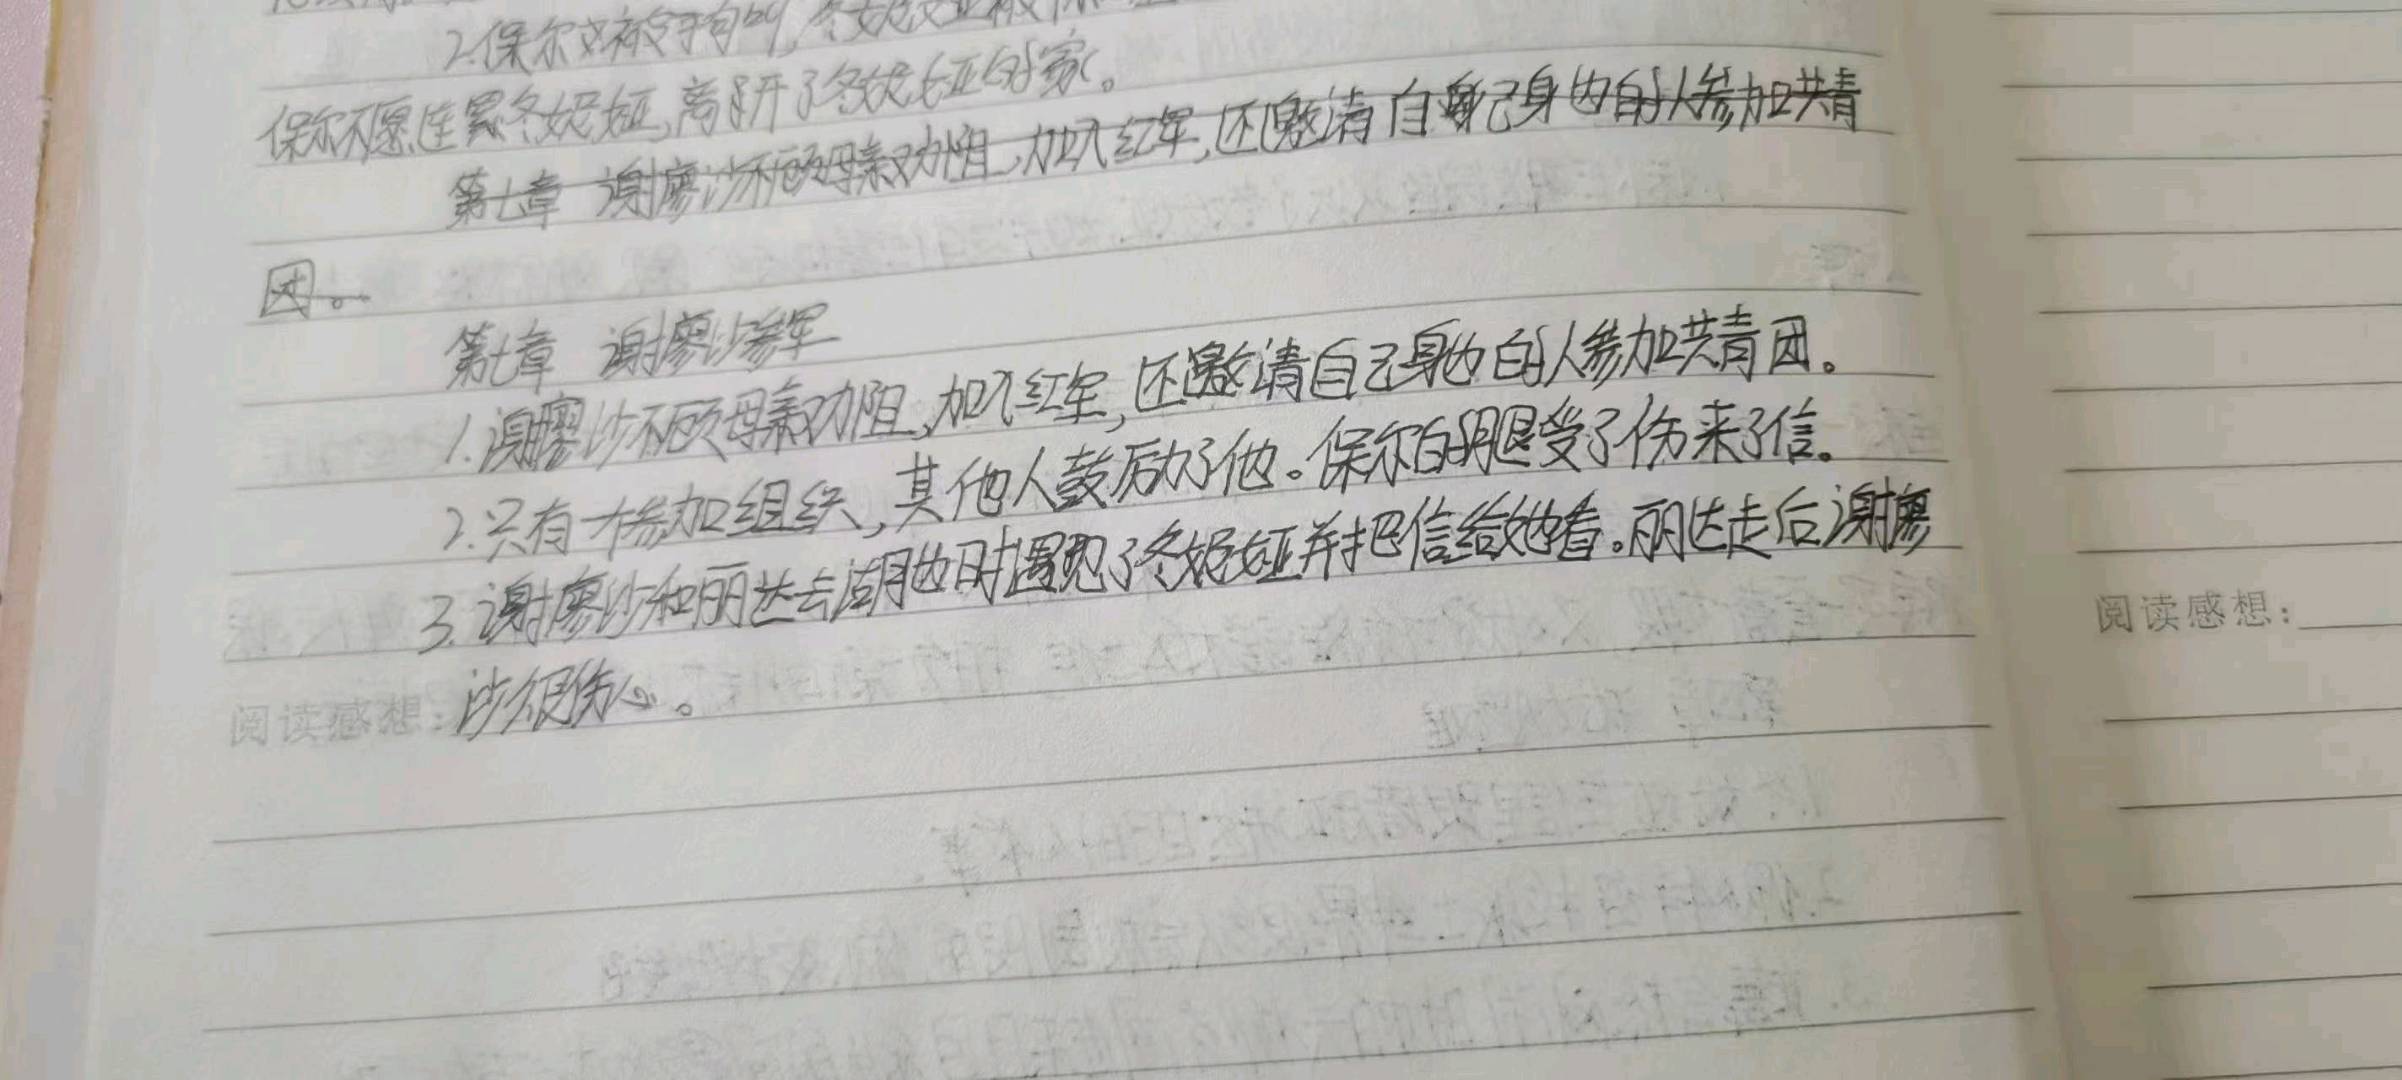 2.保尔又被
保尔不愿连累冬妮娅,离开了冬妮娅的家。
第七章 谢廖沙不顾母亲劝阻,加入红军,还邀请自己身边的人参加共青
团。
第七章 谢廖沙参军
1.谢廖沙不顾母亲劝阻,加入红军,还邀请自己身边的人参加共青团。
2.只有一个参加组织,其他人鼓励了他。保尔的腿受了伤来了信。
3.谢廖沙和丽达去湖边时遇见了冬妮娅并把信给她看。丽达走后谢廖
阅读感想:沙很伤心。
阅读感想: